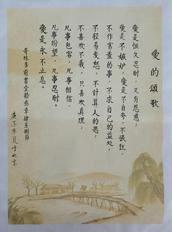 愛的頌歌
愛是恆久忍耐，又有恩慈。
愛是不嫉妒，愛是不自夸，不張狂，
不作害羞的事，不求自己的益處，
不輕易發怒，不計算人的惡，
不喜歡不義，只喜歡真理，
凡事包容，凡事相信，
凡事盼望，凡事忍耐。
愛是永不止息。
哥林多前書